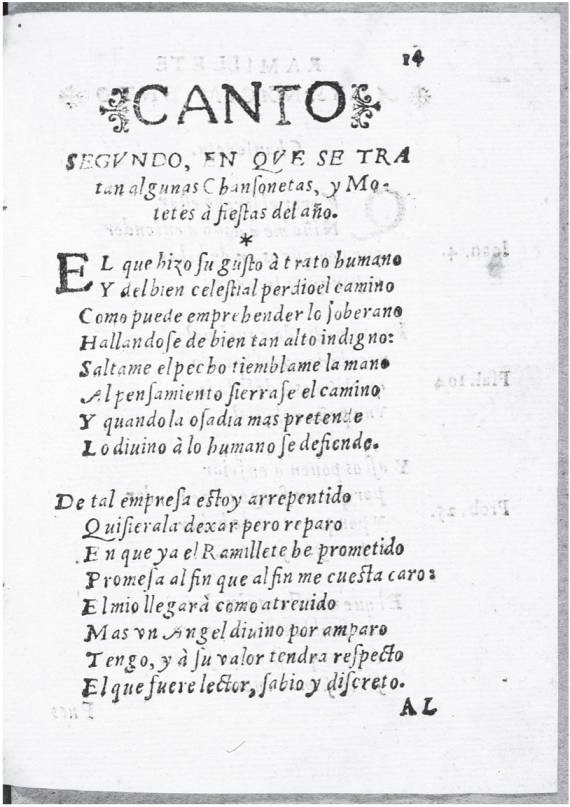 14
CANTO
SEGVNDO, EN QVE SE TRA
tan algunas Chanſonetas, y Mo-
tetes à fieſtas del año.
*
EL que hizo ſu guſto à trato humano
Y del bien celeſtial perdio el camino
Como puede emprehender lo ſoberano
Hallandoſe de bien tan alto indigno:
Saltame el pecho tiemblame la mano
Al penſamiento ſierraſe el camino
Y quando la oſadia mas pretende
Lo diuino à lo humano ſe defiende.
De tal empreſa eſtoy arrepentido
Quiſierala dexar pero reparo
En que ya el Ramillete he prometido
Promeſa al fin que al fin me cueſta caro:
El mio llegarà como atreuido
Mas vn Angel diuino por amparo
Tengo, y à ſu valor tendra reſpecto
El que fuere lector, ſabio y diſcreto.
AL
RAMILLETE
Ioan. 4.
Pſal. 104
Prob. 25.